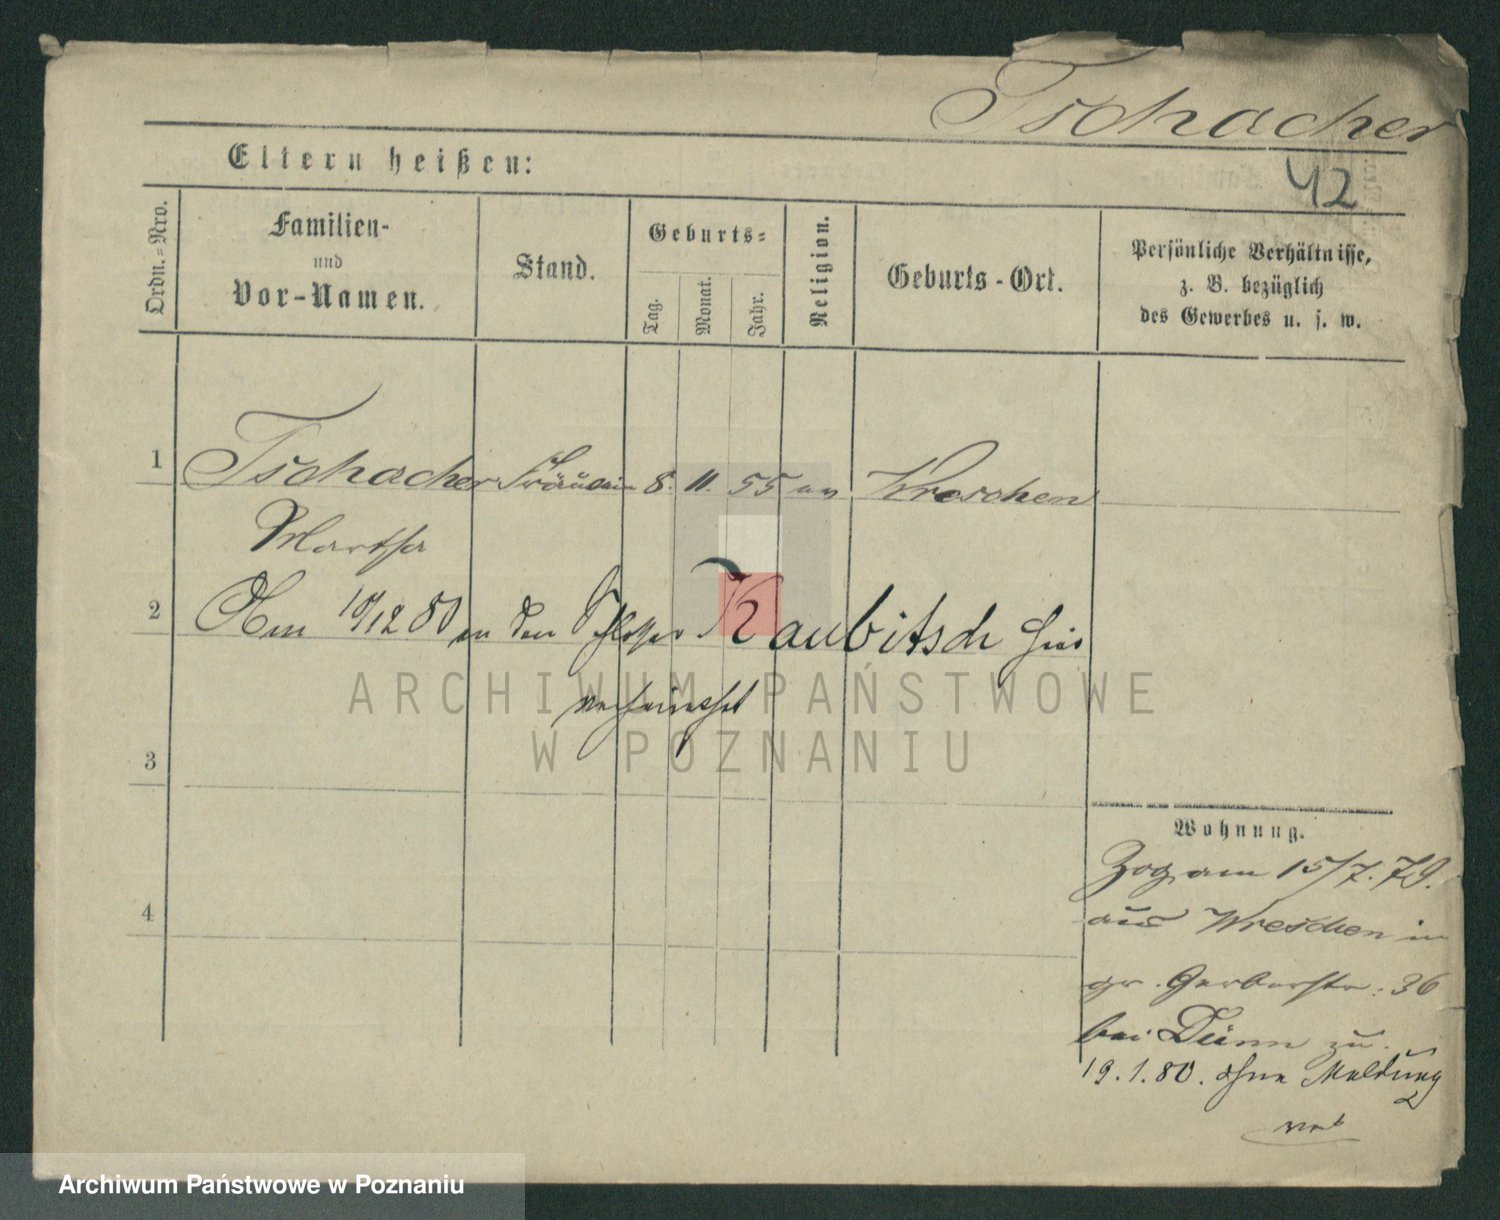 Tschacher
42
Eltern heißen:
Ordn.-Nro.
Familien-
und
Vor-Namen.
Stand.
Geburts-
Tag.
Monat.
Jahr.
Religion.
Geburts-Ort.
Persönliche Verhältnisse,
z. B. bezüglich
des Gewerbes u. s. w.
1 Tschacher Fräulein 8. 11. 55 ev Wreschen
Martha
2 Am 10/12 80 an den Schlosser Kaubitsch hier
verheirathet
ARCHIWUM PAŃSTWOWE
W POZNANIU
3
Wohnung.
Zog am 15/7. 79.
aus Wreschen in
gr. Gerberstr. 36
bei Dünn zu.
19. 1. 80. ohne Meldung
4
Archiwum Państwowe w Poznaniu